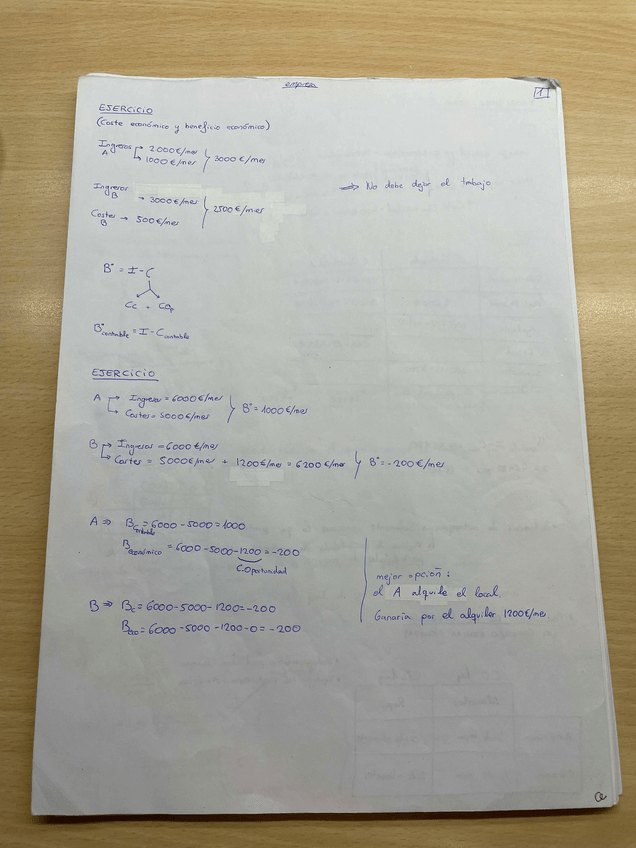 empresa
1
EJERCICIO
(Coste económico y beneficio económico)
Ingresos A → 2000€/mes
→ 1000€/mes } 3000€/mes
Ingresos B → 3000€/mes
Costes B → 500€/mes } 2500€/mes
⇒ No debe dejar el trabajo
Bº = I - C
Cc - COp
Bº contable = I - C contable
EJERCICIO
A → Ingreso = 6000€/mes
→ Costes = 5000€/mes } Bº = 1000€/mes
B → Ingresos = 6000€/mes
→ Costes = 5000€/mes + 1200€/mes = 6200€/mes } Bº = -200€/mes
A ⇒ B contable = 6000 - 5000 = 1000
B económico = 6000 - 5000 - 1200 = -200
C.Oportunidad
B ⇒ Bc = 6000 - 5000 - 1200 = -200
Beco = 6000 - 5000 - 1200 - 0 = -200
mejor opción:
el A alquile el local.
Ganaría por el alquiler 1200€/mes.